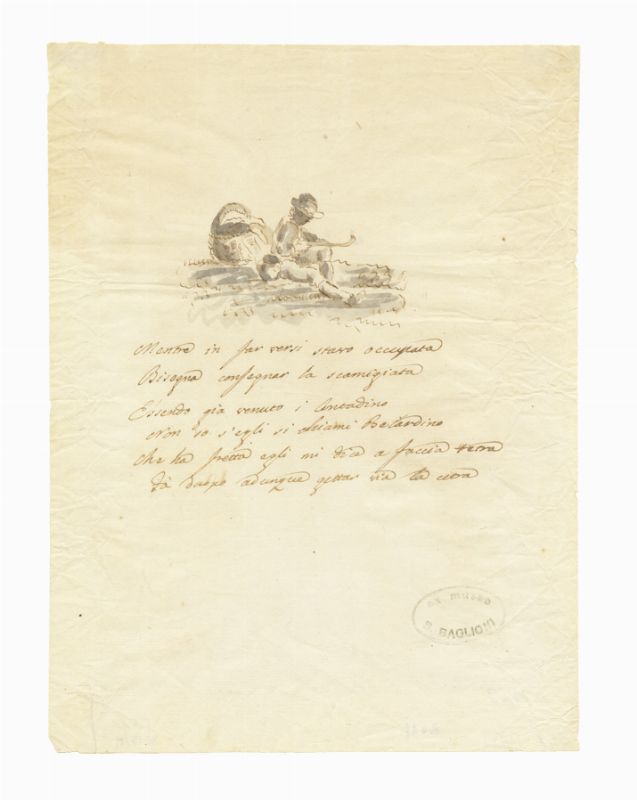 Mentre in far versi stavo occupata
Bisogna consegnar la scamigiata
Essendo già venuto i Contadino
Non so s'egli si chiami Belardino
Che ha fretta egli mi dice a faccia tetra
fà duopo adunque gettar via la cetra
ex museo
B. BAGLIONI